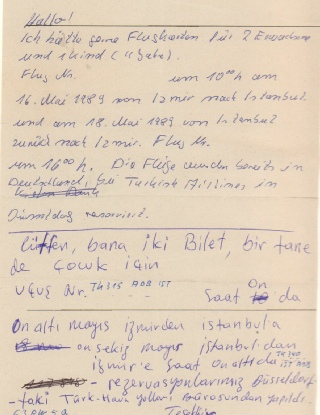 Hallo!
Ich hätte gerne Flugkarten für 2 Erwachsene
und 1 Kind (11 Jahre).
Flug Nr. um 10⁰⁰ h am
16. Mai 1989 von Izmir nach Istanbul
und am 18. Mai 1989 von Istanbul
zurück nach Izmir. Flug Nr.
um 16⁰⁰ h. Die Flüge wurden bereits in
Deutschland, bei Turkish Airlines in
Düsseldorf reserviert.
Lütfen, bana iki Bilet, bir tane
de çocuk için
Uçuş Nr. TK 315 ADB IST
Saat On da
On altı mayıs izmirden istanbula
on sekiz mayıs istanbuldan
izmir'e saat on altıda
- rezervasyonlarımız Düsseldorf
-taki Türk-Hava yolları bürosundan yapıldı.